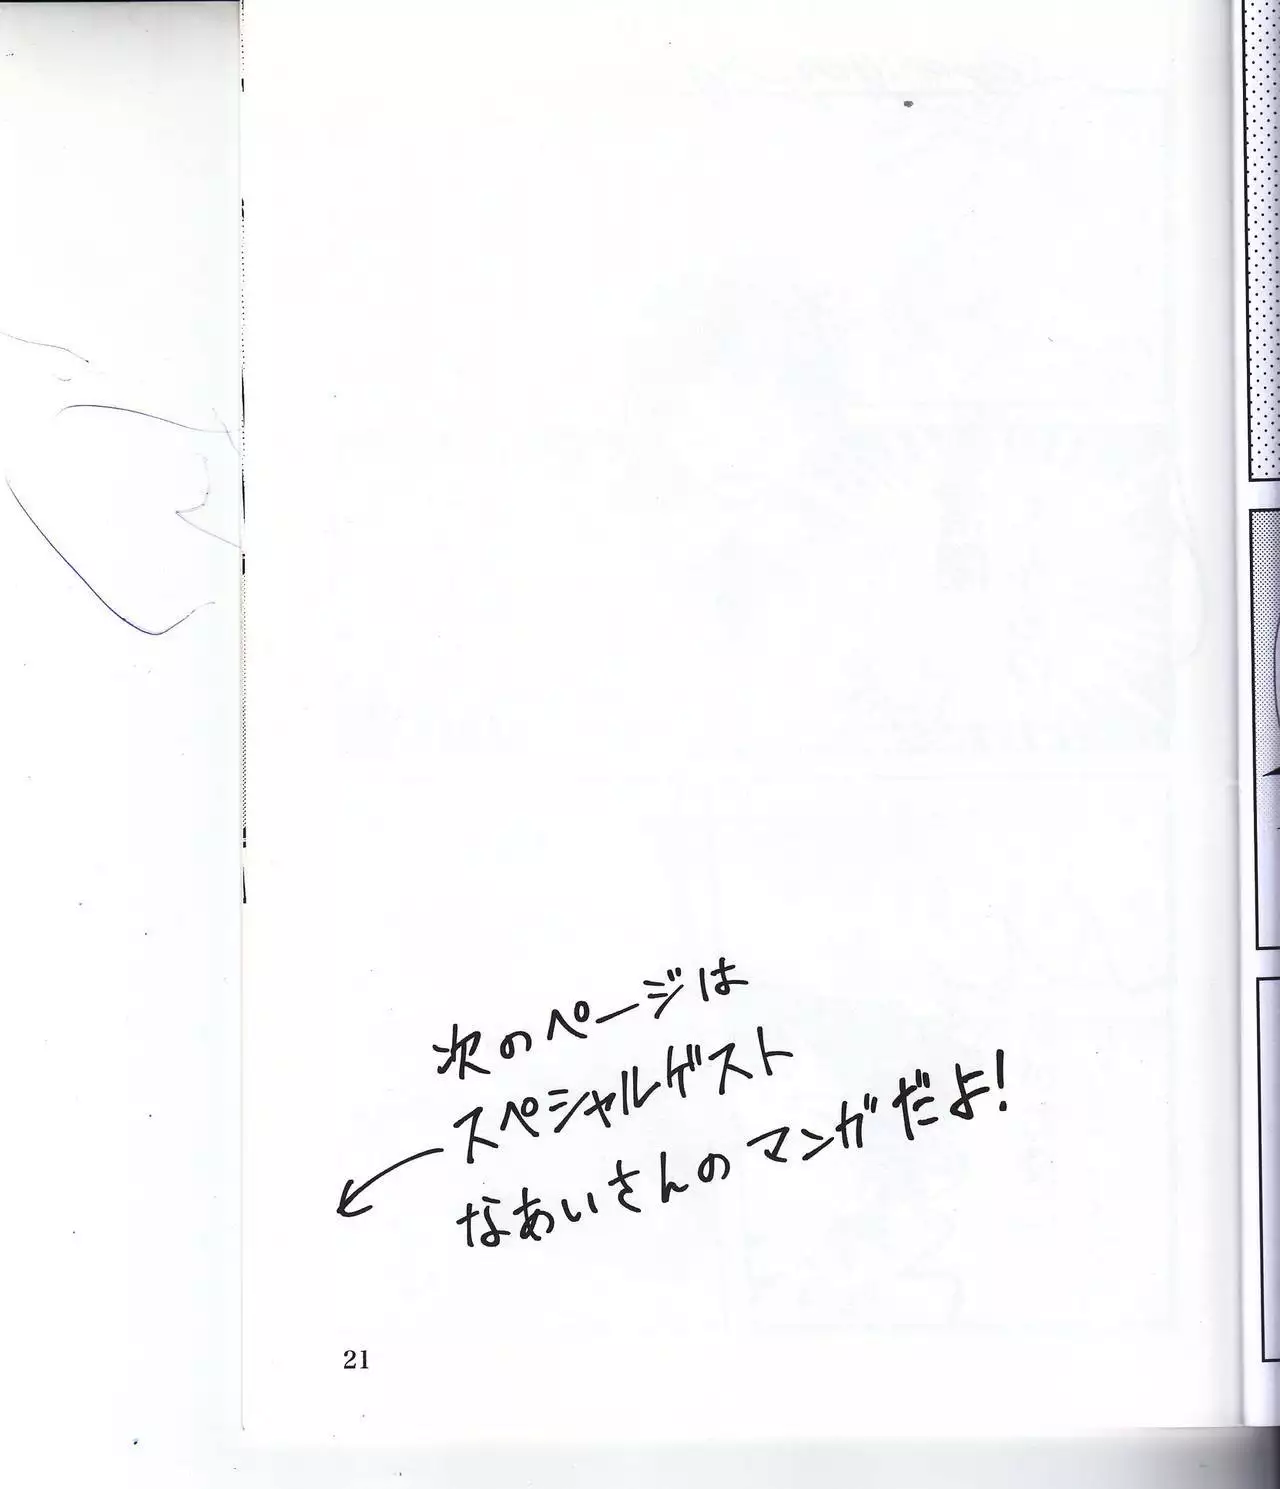 次のページは
スペシャルゲスト
なあいさんのマンガだよ！
21